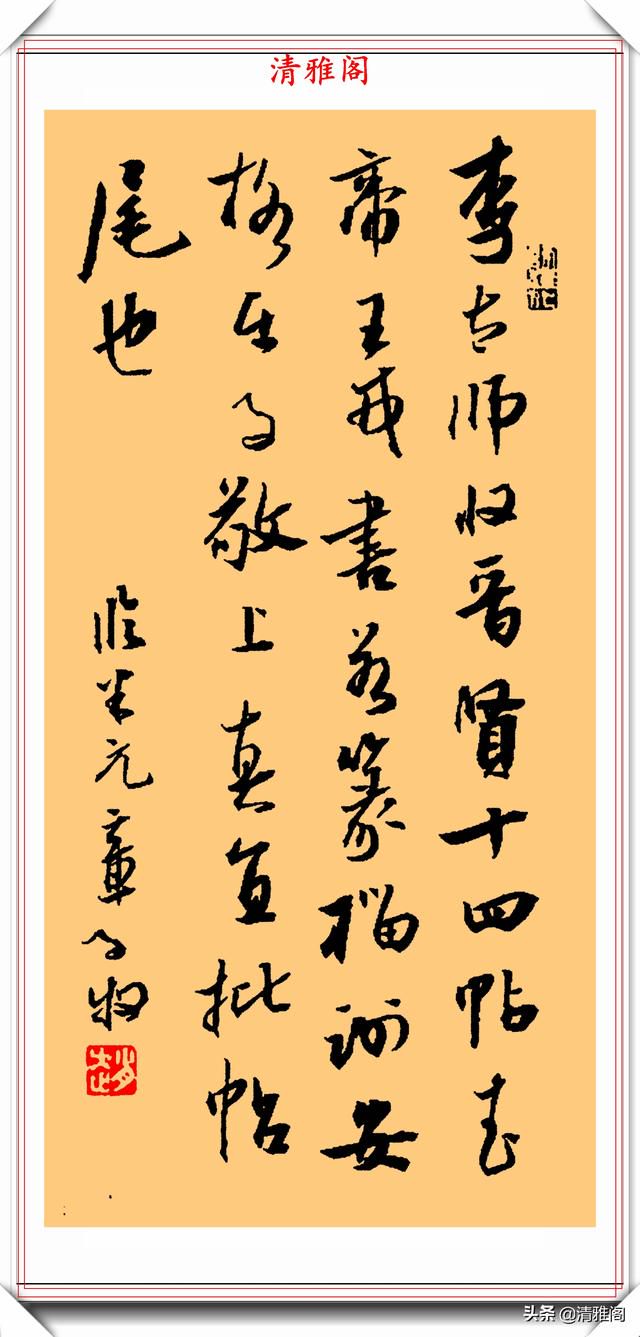 清雅阁
李太師收晉賢十四帖武
帝王戎書若篆籀謝安
格在子敬上真宜批帖
尾也
臨米元章
头条 @清雅阁